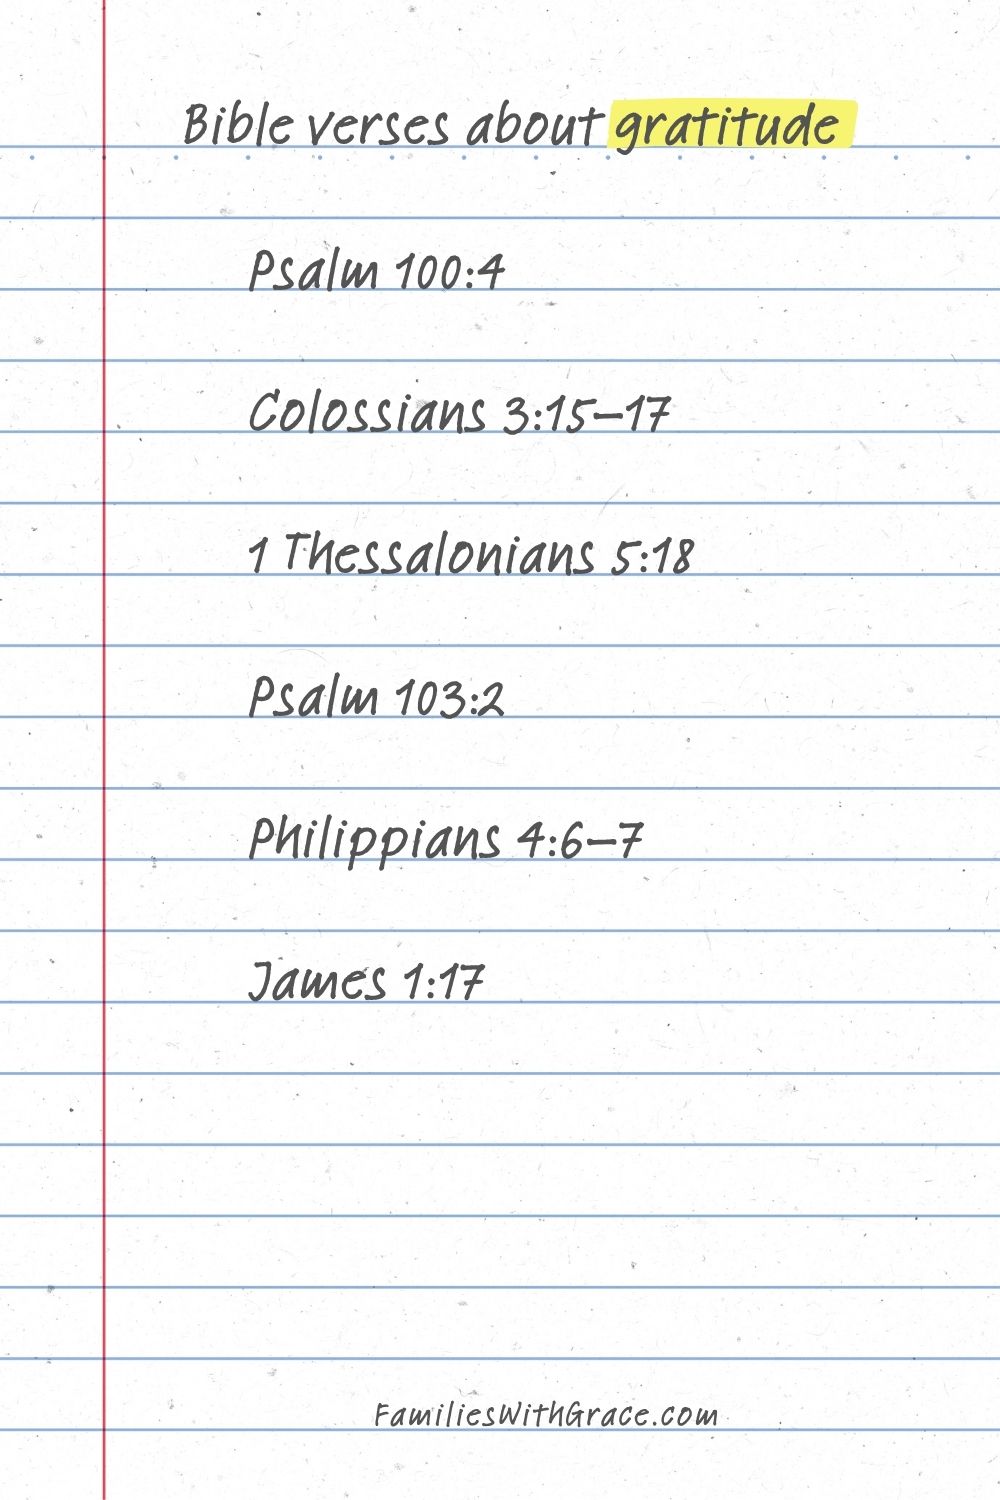 Bible verses about gratitude
Psalm 100:4
Colossians 3:15–17
1 Thessalonians 5:18
Psalm 103:2
Philippians 4:6–7
James 1:17
FamiliesWithGrace.com